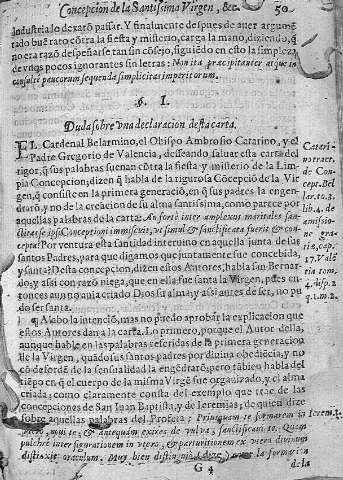 Concepcion de la Santissima Virgen, &c. 50.
industria lo dexarõ passar. Y finalmente despues de auer argumẽ
tado buẽ rato cõtra la fiesta y misterio, carga la mano, diziendo, q̃
no era razõ despeñarse tan sin cõsejo, siguiẽdo en esto la simpleza
de vnos pocos ignorantes sin letras: Non ita præcipitanter atque in
consulte paucorum sequenda simplicitas imperitorum.
§. I.
Duda sobre vna declaracion desta carta.
EL Cardenal Belarmino, el Obispo Ambrosio Catarino, y el
Padre Gregorio de Valencia, desseando saluar esta carta del
rigor, q̃ sus palabras suenan cõtra la fiesta y misterio de la Lim
pia Concepcion; dizen q̃ habla de la rigurosa Cõcepcion de la Vir
gen, q̃ consiste en la primera generació, en q̃ sus padres la engen
draró, y no de la creacion de su alma santissima, como parece por
aquellas palabras de la carta: An forte inter amplexus maritales san
ctitas se ipsi Conceptioni immiscuit, vt simul & sanctificata fuerit & con
cepta? Por ventura esta santidad interuino en aquella junta de sus
santos Padres, para que digamos que juntamente fue concebida,
y santa? Desta concepcion, dizen estos Autores, habla san Bernar
do; y assi con razõ niega, que en ella fue santa la Virgen, pues en-
tonces aun no auia criado Dios su alma; y assi antes de ser, no pu
do ser santa.
Alabo la intenció, mas no puedo aprobar la explicacion que
estos Autores dan a la carta. Lo primero, porque el Autor della,
aunque hable en las palabras referidas de la primera generacion
de la Virgen, quãdo sus santos padres por diuina obediẽcia, y no
cõ desordẽ de la sensualidad la engẽdrarõ; pero tãbien habla del
tiẽpo en q̃ el cuerpo de la misma Virgẽ fue organizado, y el alma
criada: como claramente consta del exemplo que trae de las
concepciones de San Iuan Baptista, y de Ieremias, de quien dize
sobre aquellas palabras del Profeta: Priusquam te formarem in
vtero, noui te; & antequam exires de vulua, sanctificaui te. Quam
pulchrè inter figurationem in vtero, & parturitionem ex vtero diuinum
distinxit oraculum. Muy bien distingue (dize) entre la formacion
G 4 de la
Cateri-
no tract.
de Con-
cept. Bel
lar. to. 3.
lib. 4. de
amissio-
ne gra-
tiæ, cap.
17. Valẽ
cia tom.
2. disp. 2
q. 1. m. 2.
Ierem. 1.